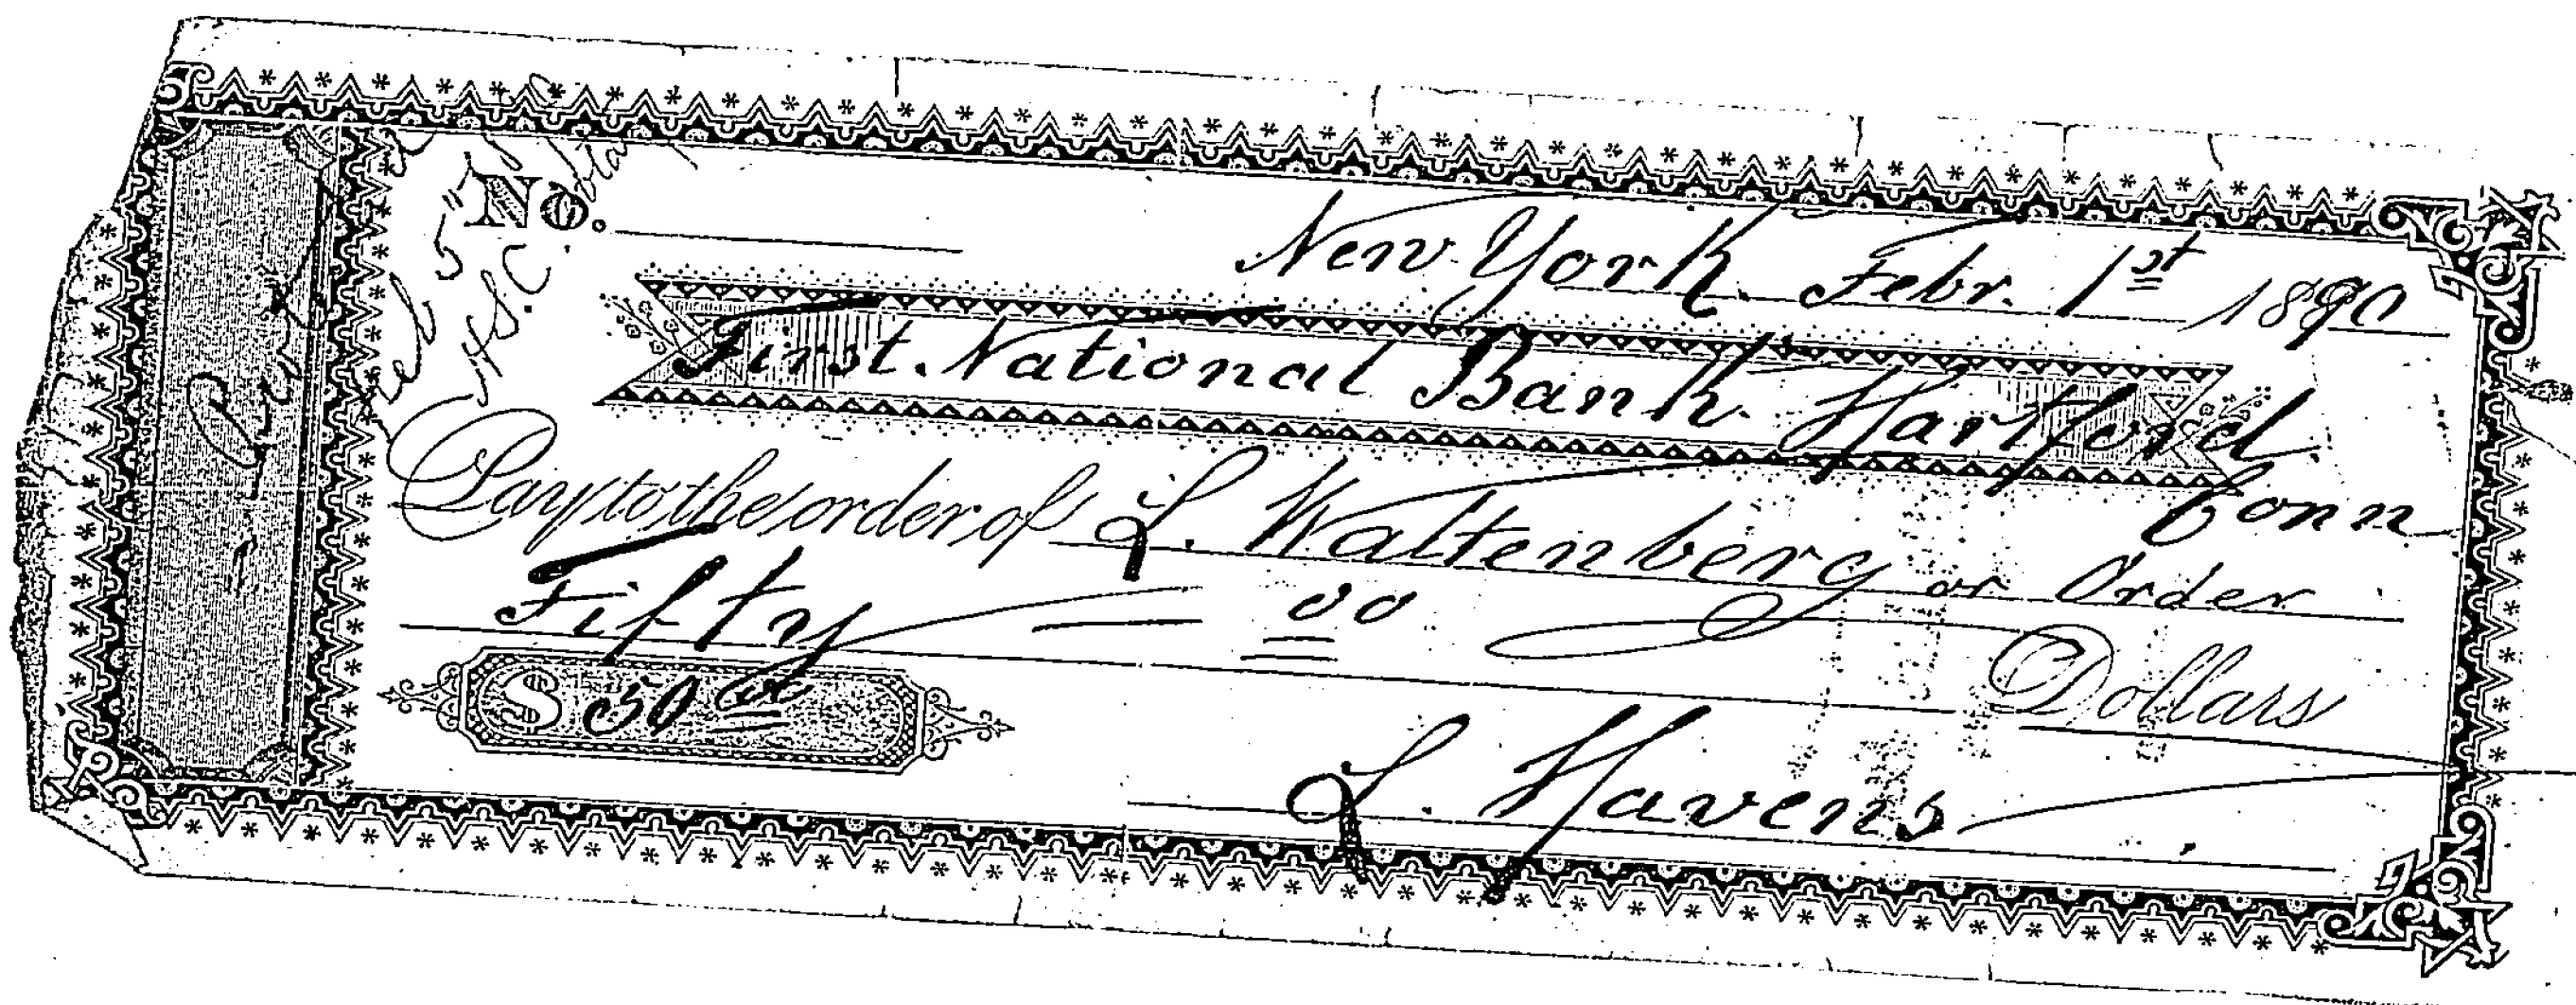 No.
New York. Febr. 1st 1890
First. National Bank. Hartford.
Conn
Pay to the order of L. Waltenberg or Order
Fifty 00
Dollars
$ 50 00
L. Havens